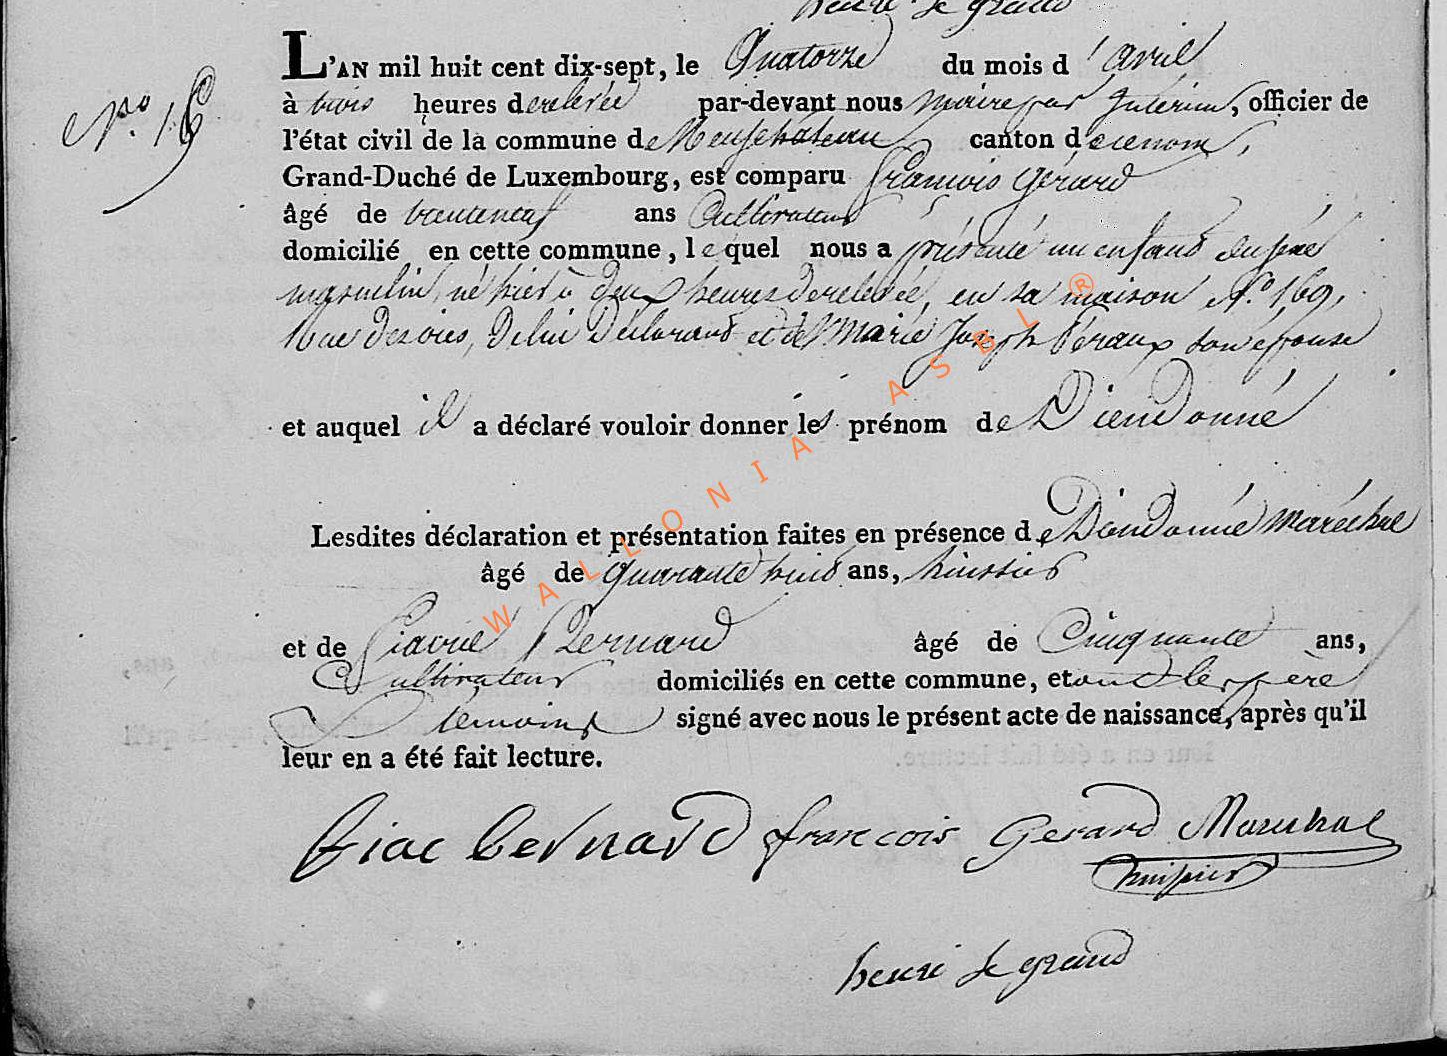 henri le grand
L'AN mil huit cent dix-sept, le Quatorze du mois d'avril
N.ro 16
à trois heures de relevée par-devant nous maire par Interim, officier de
l'état civil de la commune de Neufchateau canton de ce nom,
Grand-Duché de Luxembourg, est comparu francois Gérard
âgé de trenteneuf ans Cultivateur
domicilié en cette commune, lequel nous a présenté un enfant du sexe
masculin, né hier à deux heures de relevée, en sa maison N.o 169,
Rue de, de lui Déclarant et de Marie Joseph Péraux son épouse
et auquel il a déclaré vouloir donner les prénom de Dieudonné
Lesdites déclaration et présentation faites en présence de Dieudonné maréchal
âgé de quarante huit ans, huissier
et de Bernard âgé de Cinquante ans,
Cultivateur domiciliés en cette commune, et ont les père
& temoins signé avec nous le présent acte de naissance, après qu'il
leur en a été fait lecture.
fiac bernard francois Gerard Marechal
huissier
henri le grand
WALLONIA ASBL ®